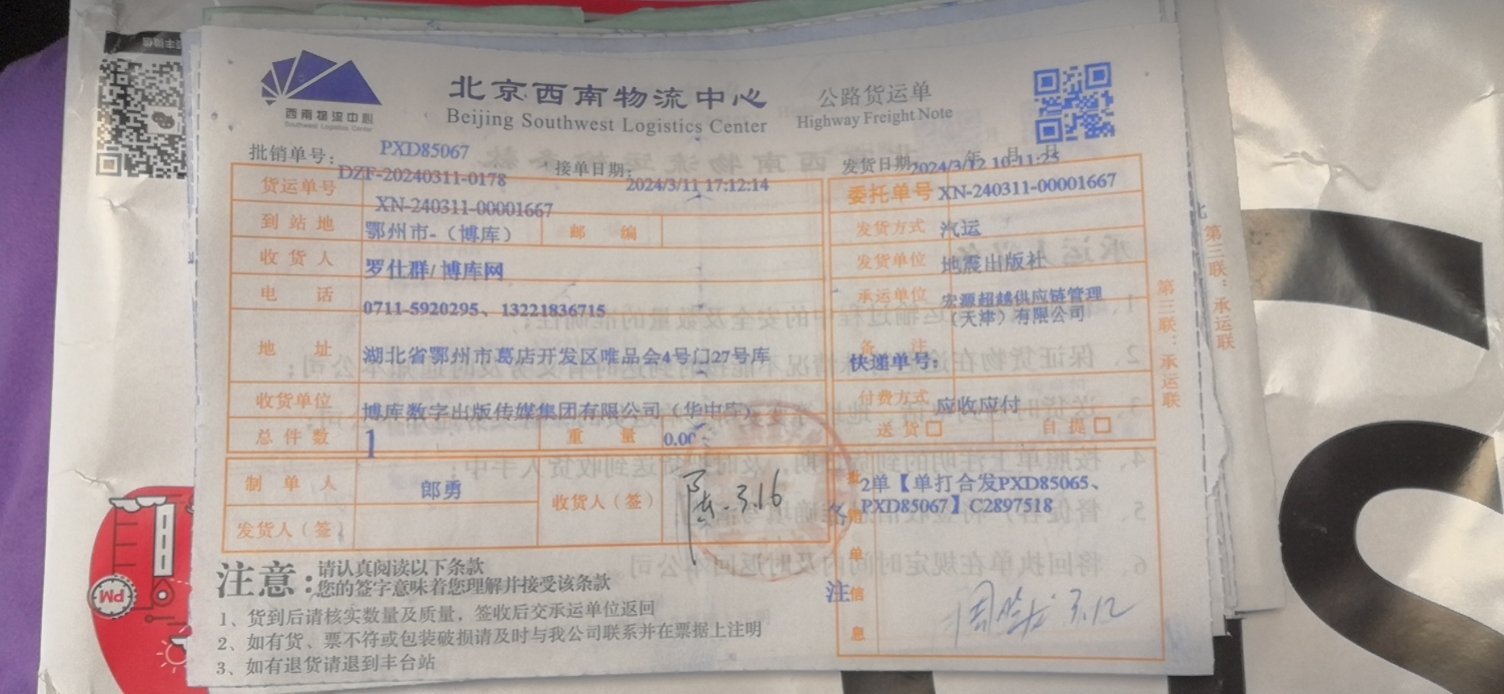 西南物流中心
Southwest Logistics Center
北京西南物流中心
Beijing Southwest Logistics Center
公路货运单
Highway Freight Note
批销单号：
PXD85067
接单日期：
2024/3/11 17:12:14
发货日期
年 月 日
2024/3/12 10:11:25
货运单号
DZF-20240311-0178
XN-240311-00001667
委托单号 XN-240311-00001667
到站地 鄂州市-（博库） 邮编
发货方式 汽运
收货人 罗仕群/博库网
发货单位 地震出版社
电话 0711-5920295、13221836715
承运单位 宏源超越供应链管理
（天津）有限公司
地址 湖北省鄂州市葛店开发区唯品会4号门27号库
备注
快递单号：
收货单位 博库数字出版传媒集团有限公司（华中库）
付费方式 应收应付
总件数 1 重量 0.00
送货□ 自提□
制单人 郎勇
收货人（签）
3.16
发货人（签）
2单【单打合发PXD85065、
PXD85067】C2897518
备注
单信息
3.12
第三联：承运联
第三联：承运联
注意：
请认真阅读以下条款
您的签字意味着您理解并接受该条款
1、货到后请核实数量及质量，签收后交承运单位返回
2、如有货、票不符或包装破损请及时与我公司联系并在票据上注明
3、如有退货请退到丰台站
PM